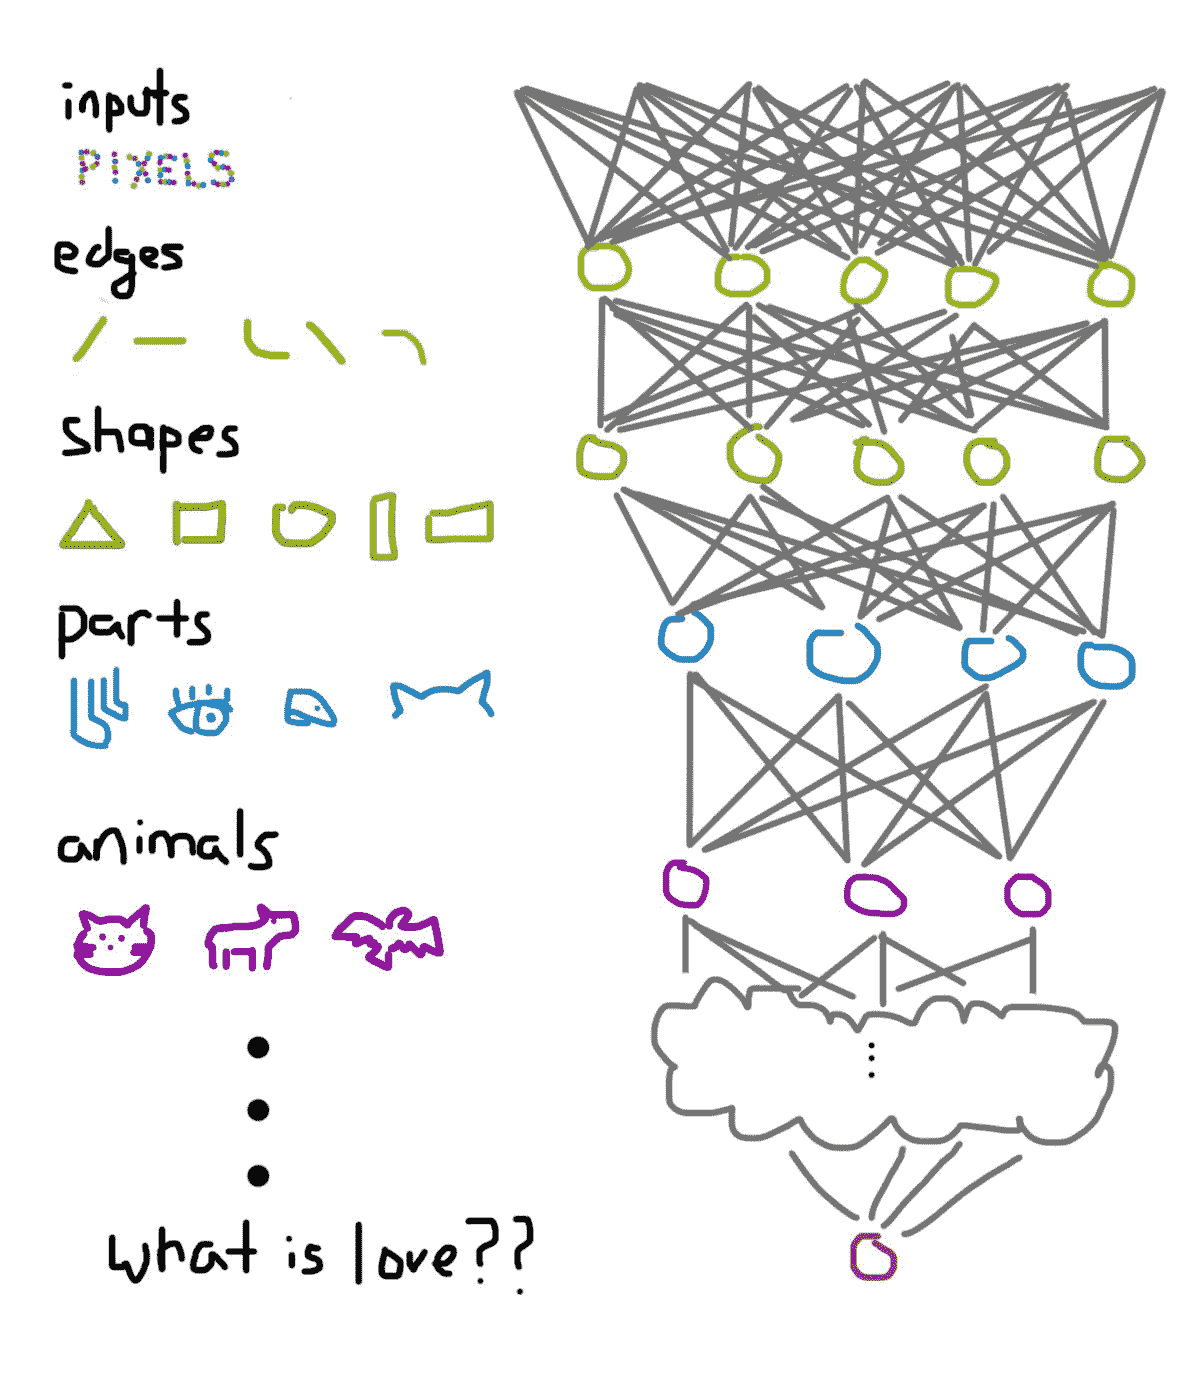 inputs
PIXELS
edges
shapes
parts
animals
what is love??